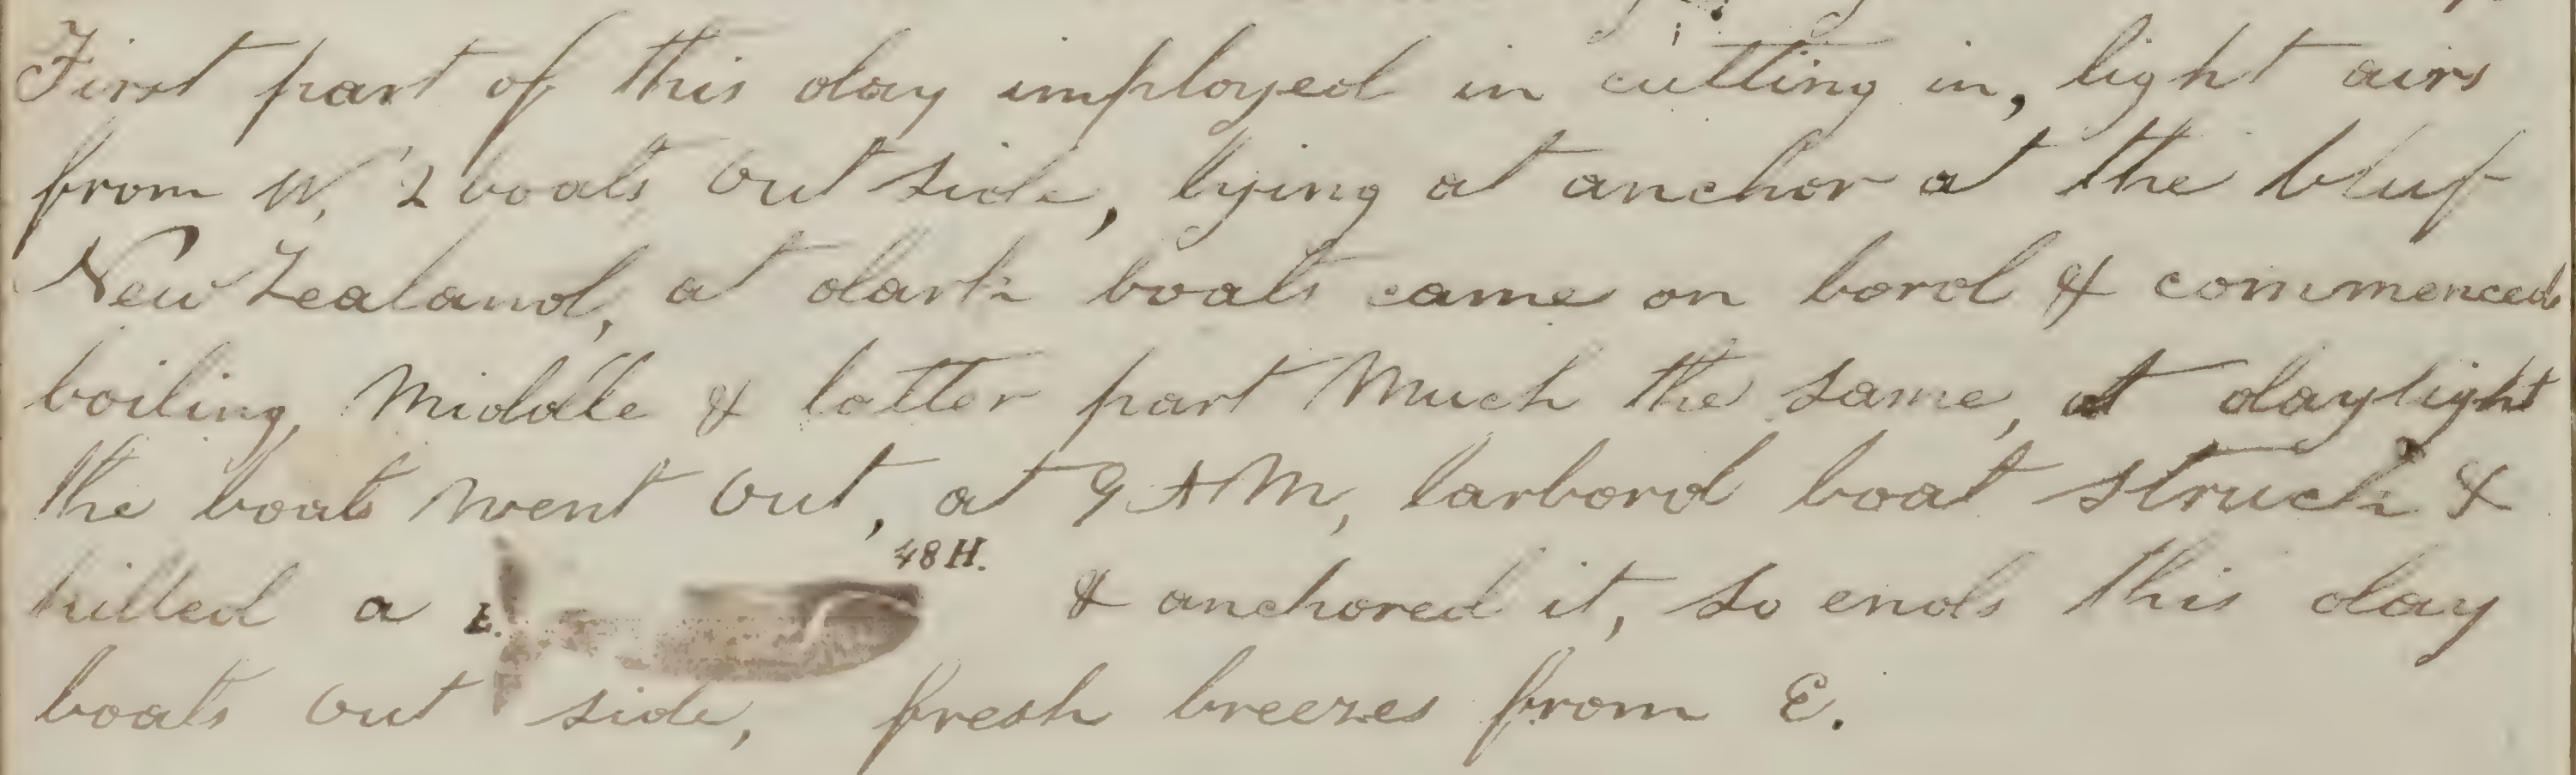 First part of this day imployed in cutting in, light airs
from W, 2 boats out side, lying at anchor at the bluf
New Zealand, at dark boats came on bord & commenced
boiling, Middle & latter part Much the same, at daylight
the boats went out, at 9 AM, larbord boat struck &
48 H.
killed a L. & anchored it, So ends this day
boats out side, fresh breezes from E.